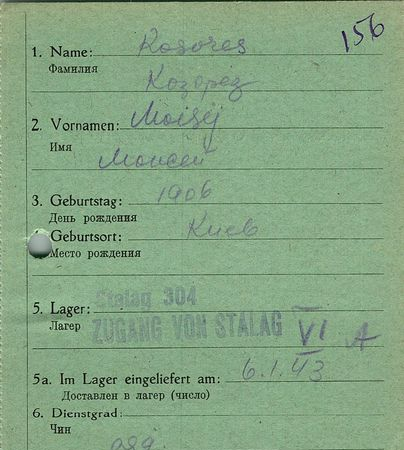 156
1. Name: Kosores
Фамилия
Козорез
2. Vornamen: Moisej
Имя
Моисей
3. Geburtstag: 1906
День рождения
Geburtsort: Киев
Место рождения
5. Lager: Stalag 304
Лагер ZUGANG VON STALAG VI A
5a. Im Lager eingeliefert am: 6.1.43
Доставлен в лагер (число)
6. Dienstgrad:
Чин